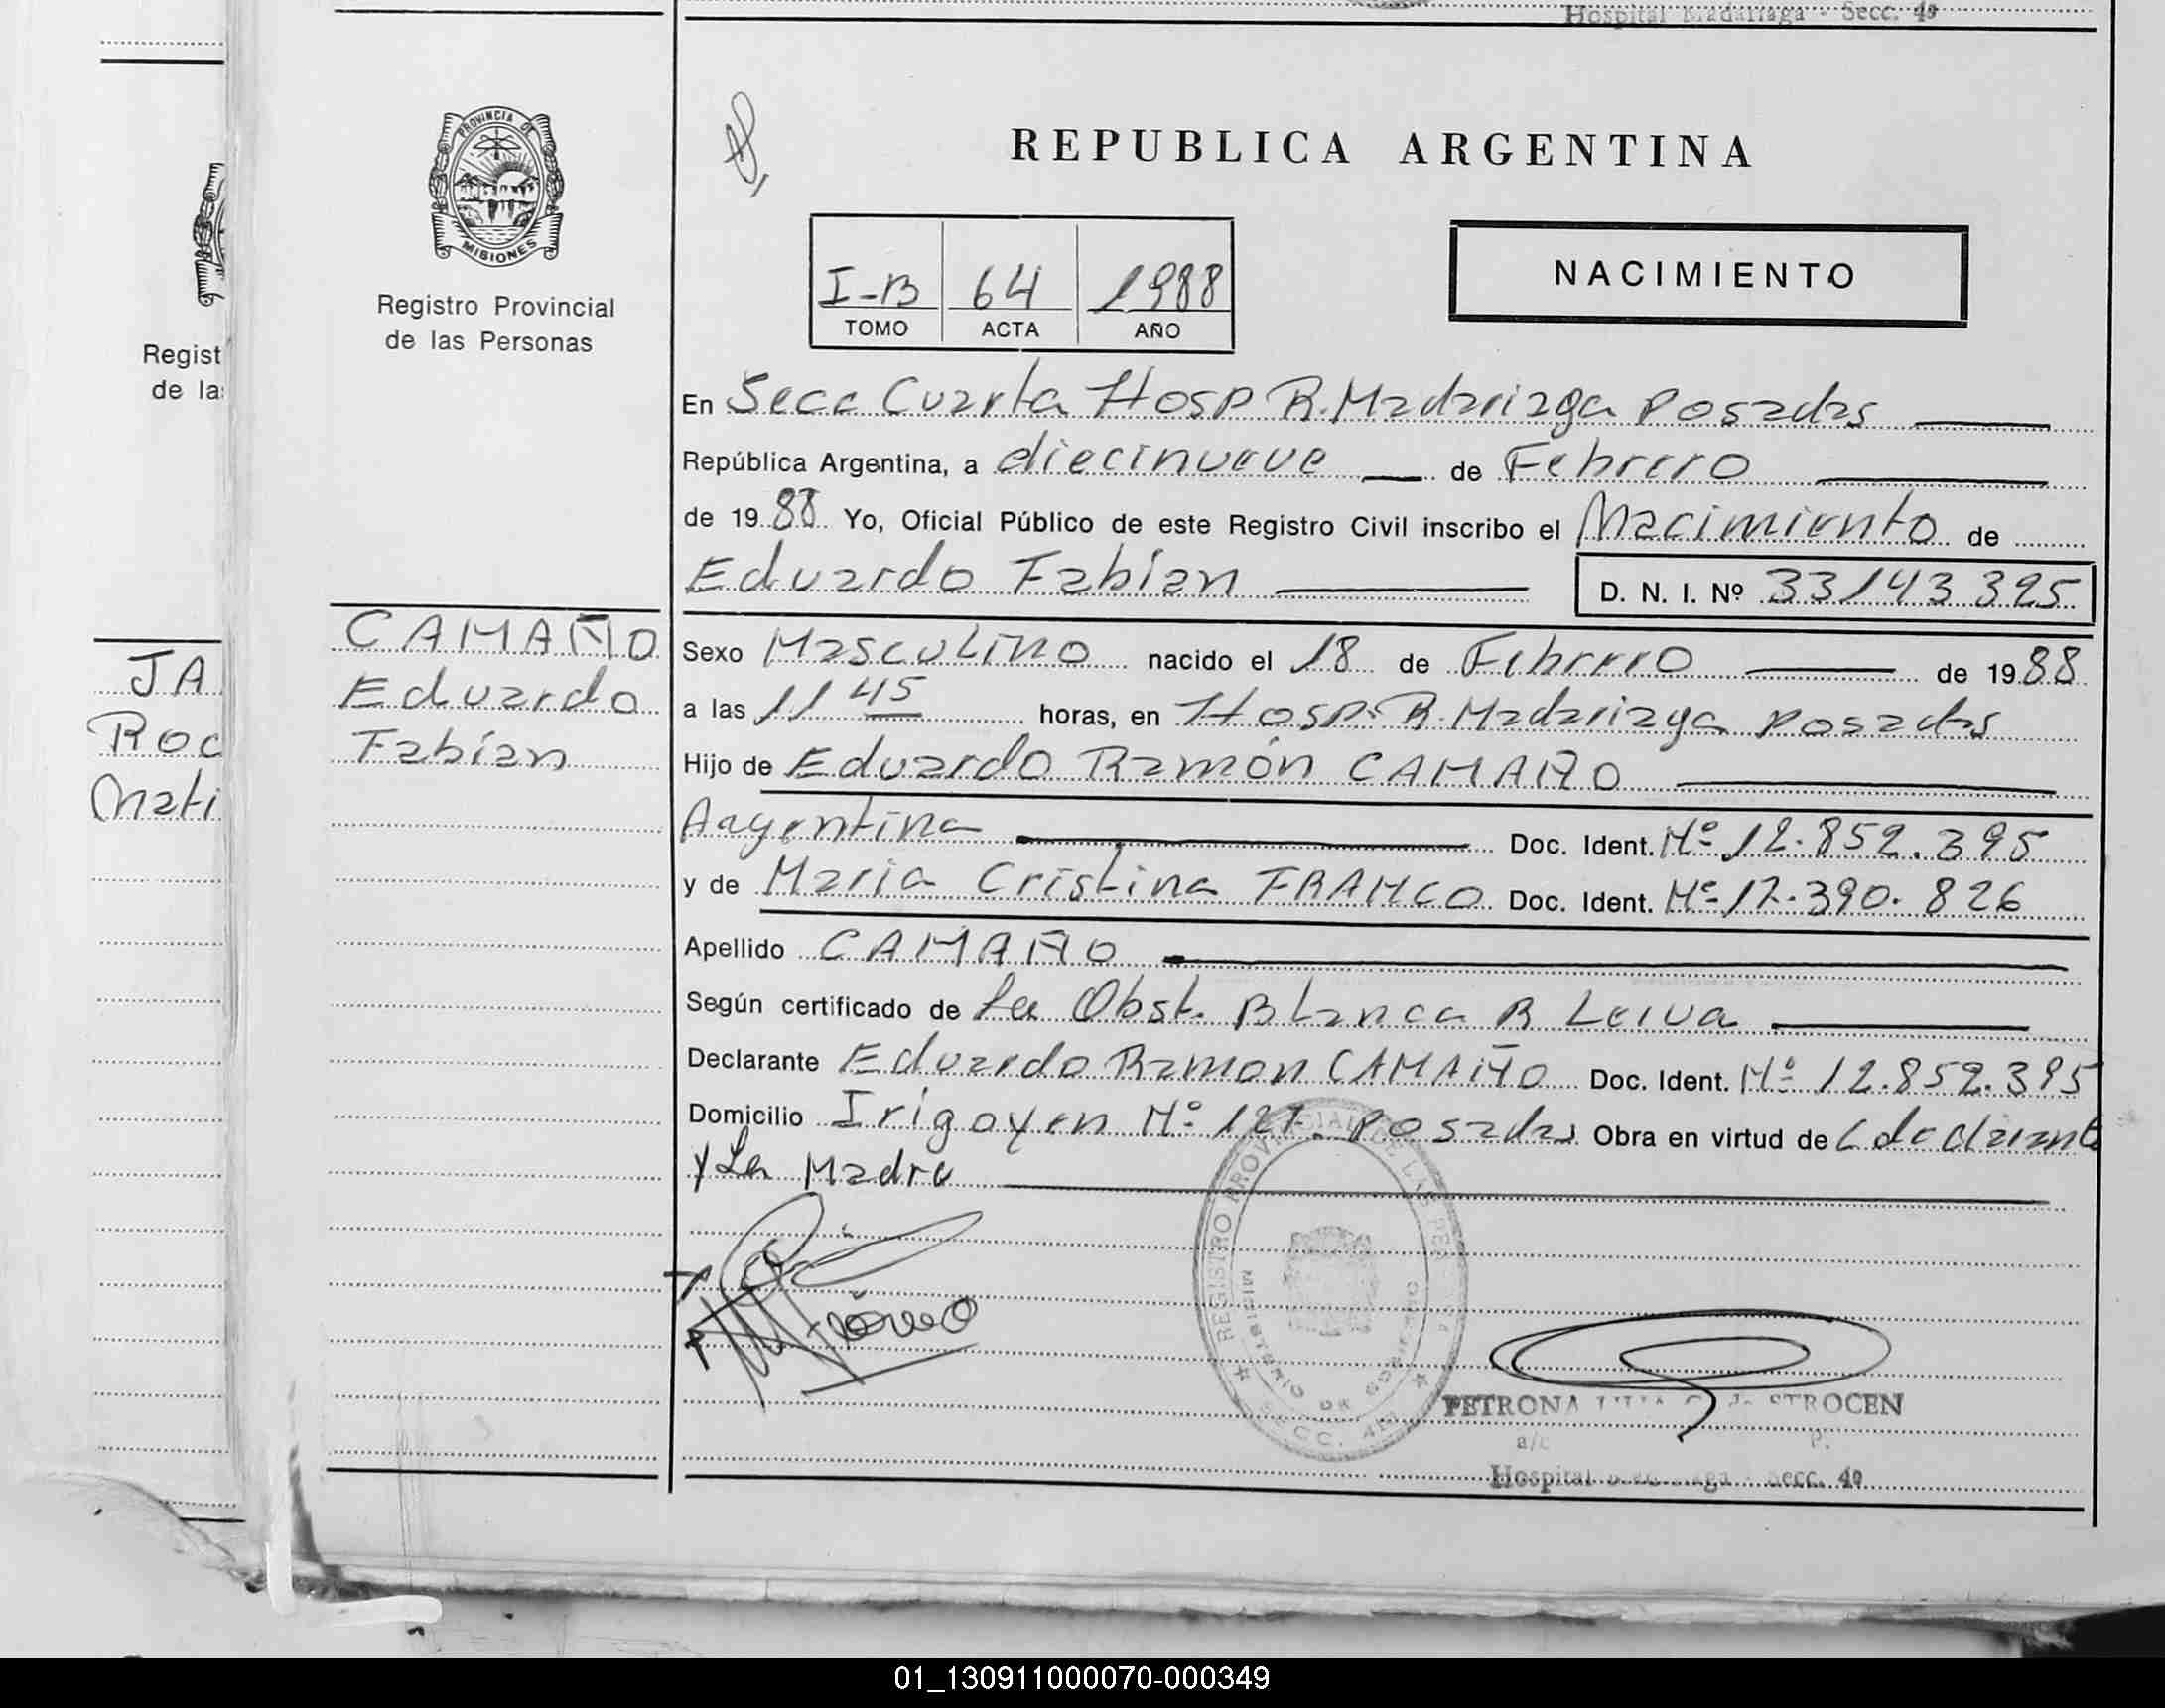 Hospital Madariaga - Secc. 4ª
PROVINCIA DE
MISIONES
Registro Provincial
de las Personas
REPUBLICA ARGENTINA
I-B 64 1988
TOMO ACTA AÑO
NACIMIENTO
Regist
de las
En Secc Cuarta Hosp R. Madariaga Posadas
República Argentina, a diecinueve de Febrero
de 1988 Yo, Oficial Público de este Registro Civil inscribo el Nacimiento de
Eduardo Fabían D. N. I. Nº 33143395
JA
Roc
Mati
CAMAÑO
Eduardo
Fabían
Sexo Masculino nacido el 18 de Febrero de 1988
a las 11 45 horas, en Hosp. R. Madariaga Posadas
Hijo de Eduardo Ramón CAMAÑO
Argentina Doc. Ident. Nº 12.852.395
y de Maria Cristina FRANCO Doc. Ident. Nº 12.390.826
Apellido CAMAÑO
Según certificado de La Obst. Blanca R Leiva
Declarante Eduardo Ramon CAMAÑO Doc. Ident. Nº 12.852.395
Domicilio Irigoyen Nº 127. Posadas Obra en virtud de
y La Madre
REGISTRO PROVINCIAL DE LAS PERSONAS
MINISTERIO DE GOBIERNO
SECC. 4ª
PETRONA STROCEN
Hospital Secc. 4ª
01_130911000070-000349